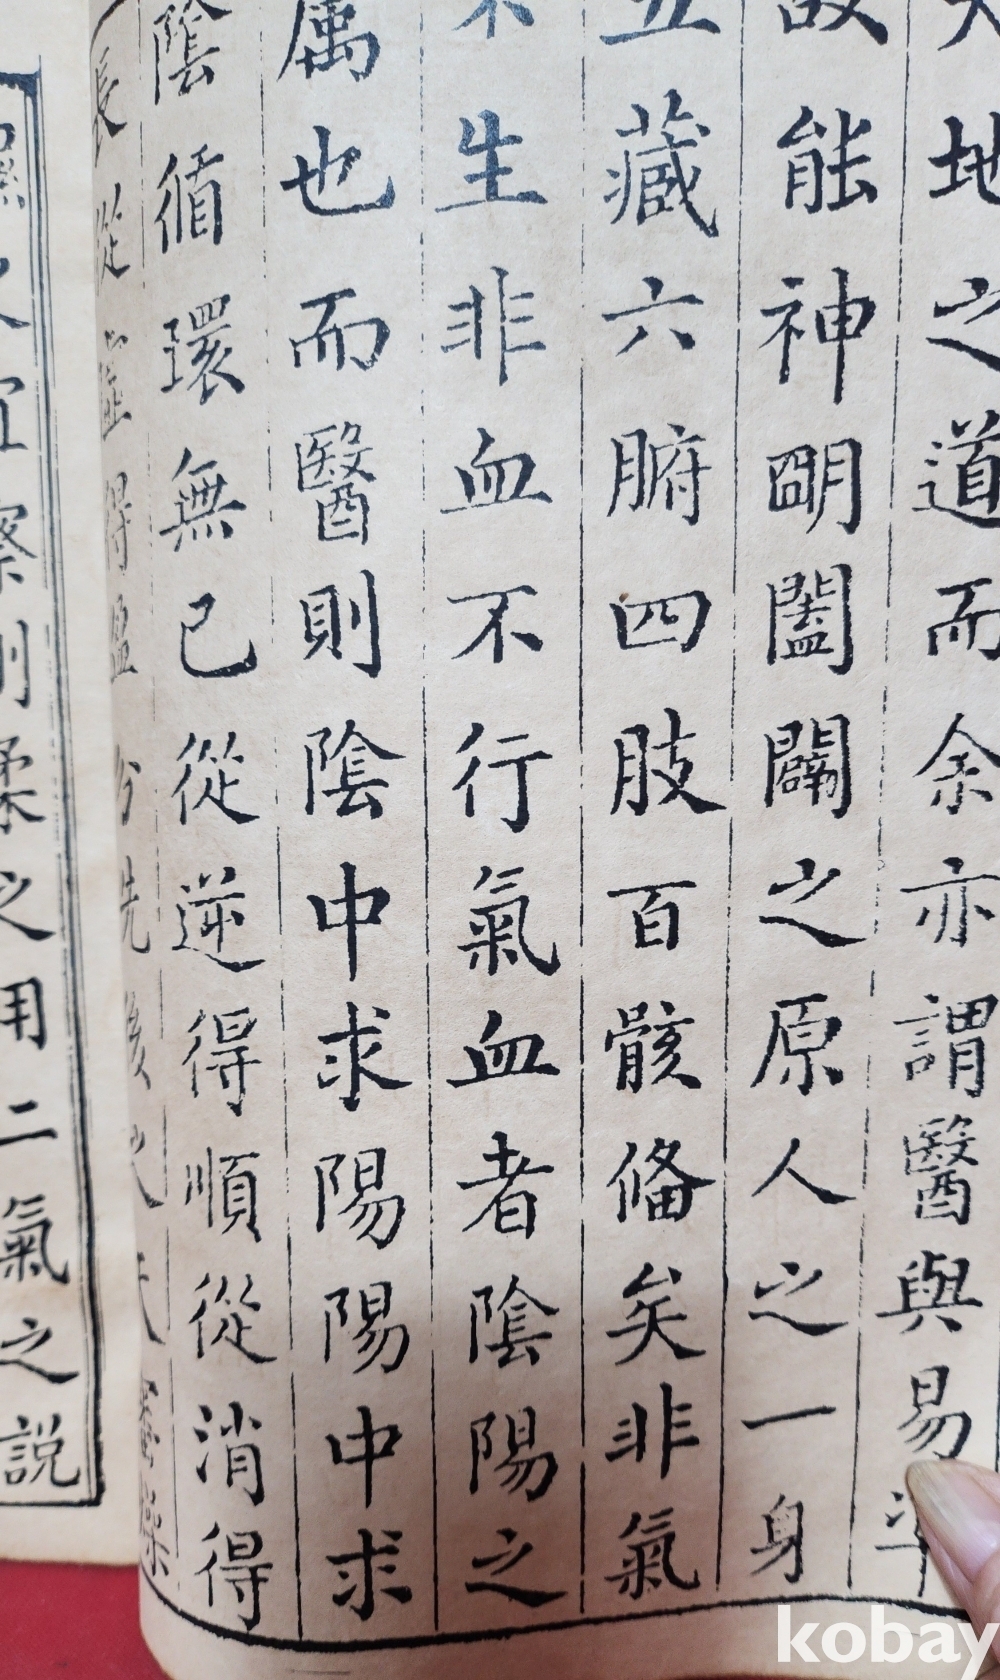 地之道而余亦謂醫與易
故能神朙闔闢之原人之一身
五藏六腑四肢百骸俻矣非氣
不生非血不行氣血者陰陽之
属也而醫則陰中求陽陽中求
陰循環無已從逆得順從消得
長從虛得盈
宜察剛柔之用二氣之説
kobay